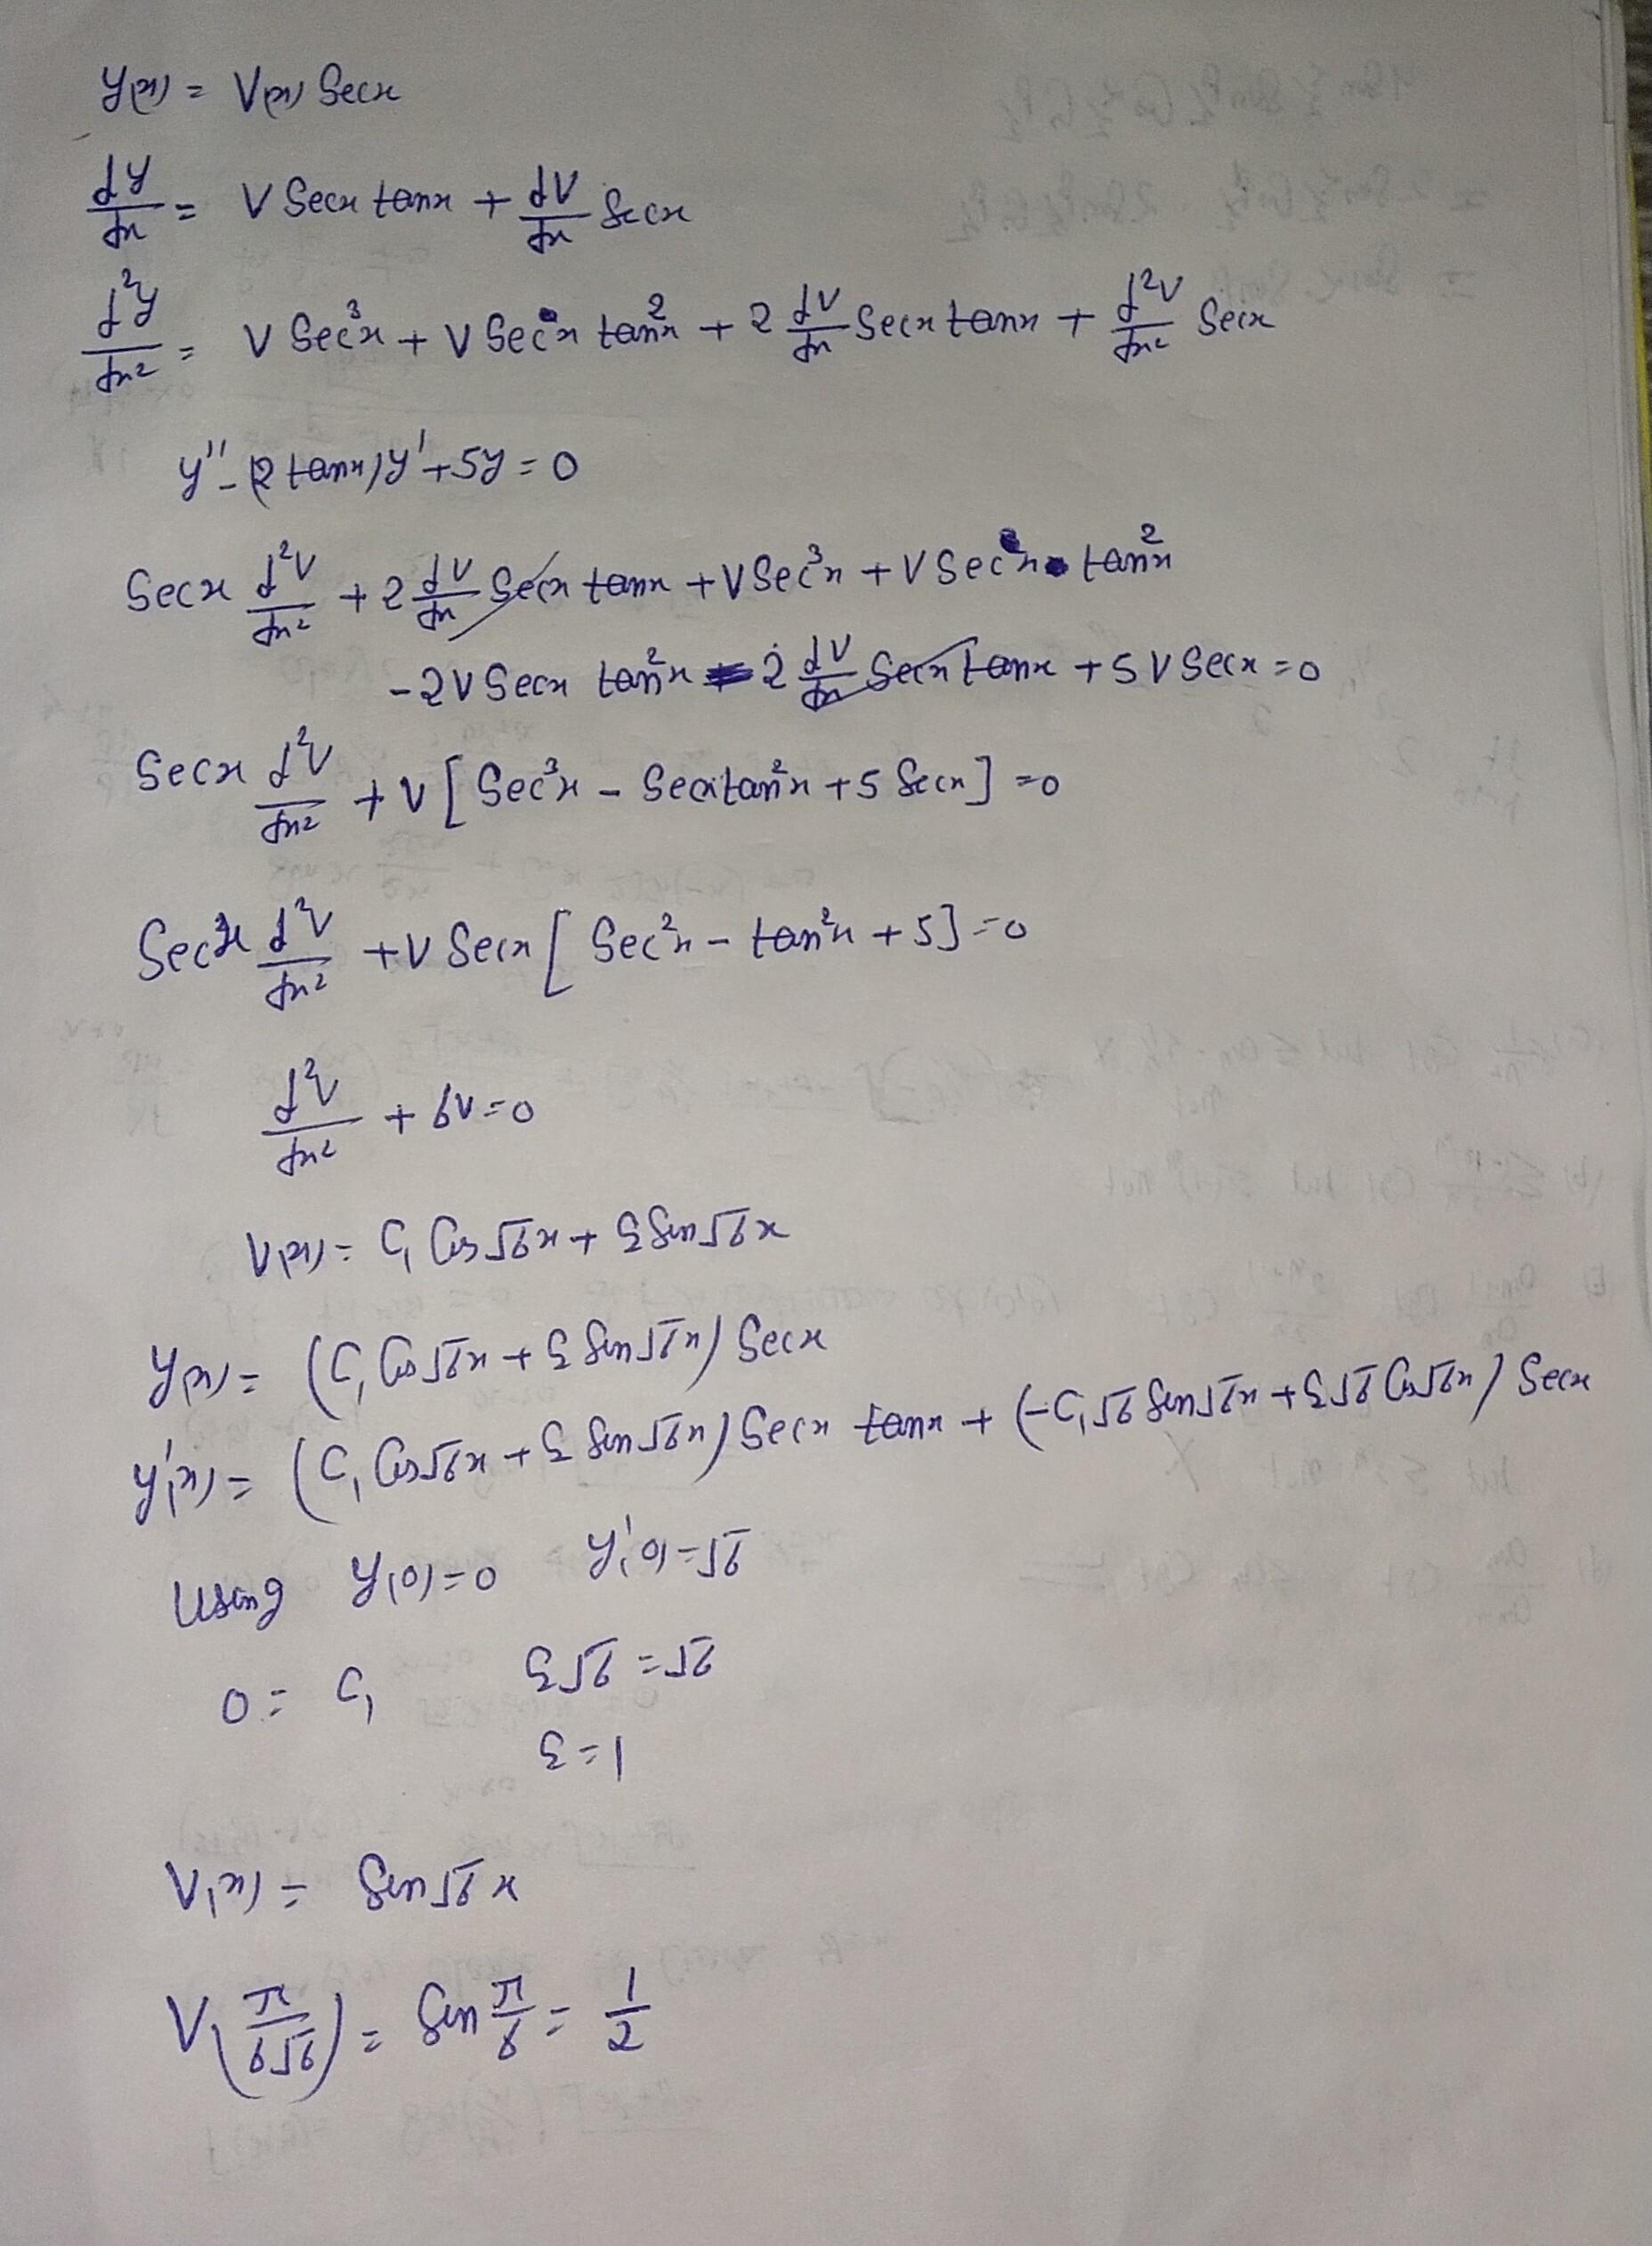 y(x) = V(x) Secx
dy/dx = V Secx tanx + dV/dx Secx
d²y/dx² = V Sec³x + V Secx tan²x + 2 dV/dx Secx tanx + d²V/dx² Secx
y'' - (2 tanx) y' + 5y = 0
Secx d²V/dx² + 2 dV/dx Secx tanx + V Sec³x + V Secx tan²x
- 2V Secx tan²x - 2 dV/dx Secx tanx + 5 V Secx = 0
Secx d²V/dx² + V [ Sec³x - Secx tan²x + 5 Secx ] = 0
Secx d²V/dx² + V Secx [ Sec²x - tan²x + 5 ] = 0
d²V/dx² + 6V = 0
V(x) = C₁ Cos √6 x + C₂ Sin √6 x
y(x) = (C₁ Cos √6 x + C₂ Sin √6 x) Secx
y'(x) = (C₁ Cos √6 x + C₂ Sin √6 x) Secx tanx + (-C₁ √6 Sin √6 x + C₂ √6 Cos √6 x) Secx
Using y(0) = 0 y'(0) = √6
0 = C₁ C₂ √6 = √6
C₂ = 1
V(x) = Sin √6 x
V(π/6√6) = Sin π/6 = 1/2